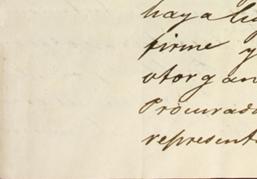 haya
firme y
otorgan
Procurad
represent